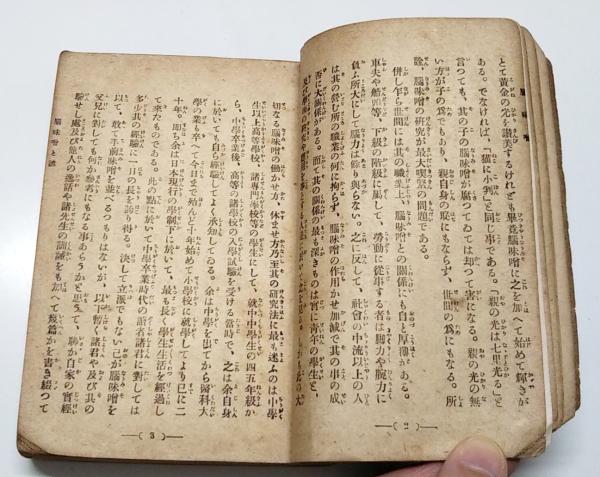 腦味噌
とて黄金の光を讃美するけれども畢竟腦味噌に之を加へて始めて輝きが
ある。でなければ、「猫に小判」と同じ事である。「親の光は七里光る」と
言つても、其の子の腦味噌が腐つてゐては却つて害になる。親の光の無
い方が子の爲でもあり、親自身の取にもならず、世間の爲にもなる。所
詮、腦味噌の研究が最大喫緊の問題である。
併し乍ら世間には其の職業上、腦味噌との關係にも自と厚薄がある。
車夫や船頭等、下級の階級に屬して、勞動に從事する者は脚力や腕力に
負ふ所大にして腦力は餘り與らない。之に反して、社會の中流以上の人
は其の營む所の職業の何に拘らず、腦味噌の作用かせ加減で其の事の成
否に大關係がある。而て其の關係の最も深きものは實に青年の學生と、
―( 2 )―
腦味噌と誰
切なる腦味噌の働かせ方、休ませ方乃至其の研究法に最も迷ふのは中學
生以上高等學校、諸專門校等の學生にして、就中中學生の四五年級か
ら、中學卒業後、高等の諸學校の入學試驗を受ける當時で、之は余自身
に於いても自ら經驗してよく承知してゐる。余は中學を出てから醫科大
學の業を終へて今日まで殆んど十年始めて小學校に就學してより已に二
十年。即ち余は日本現行の學制下に於いて、最も長く學生生活を經過し
て來たものである。此の點に於いて中學卒業時代の讀者諸君に對しては
多少其の經驗に一日の長を誇り得る。決して立派でもない己が腦味噌を
以て、敢て手前味噌を並べるつもりはないが、以下暫く諸君や及び其の
父兄に對しても何か參考にもなる事あらうかと思うて、聊か自家の實經
驗せし處及び偉人の逸話や諸先生の訓誡をも加へて數篇かを書き綴つて
―( 3 )―